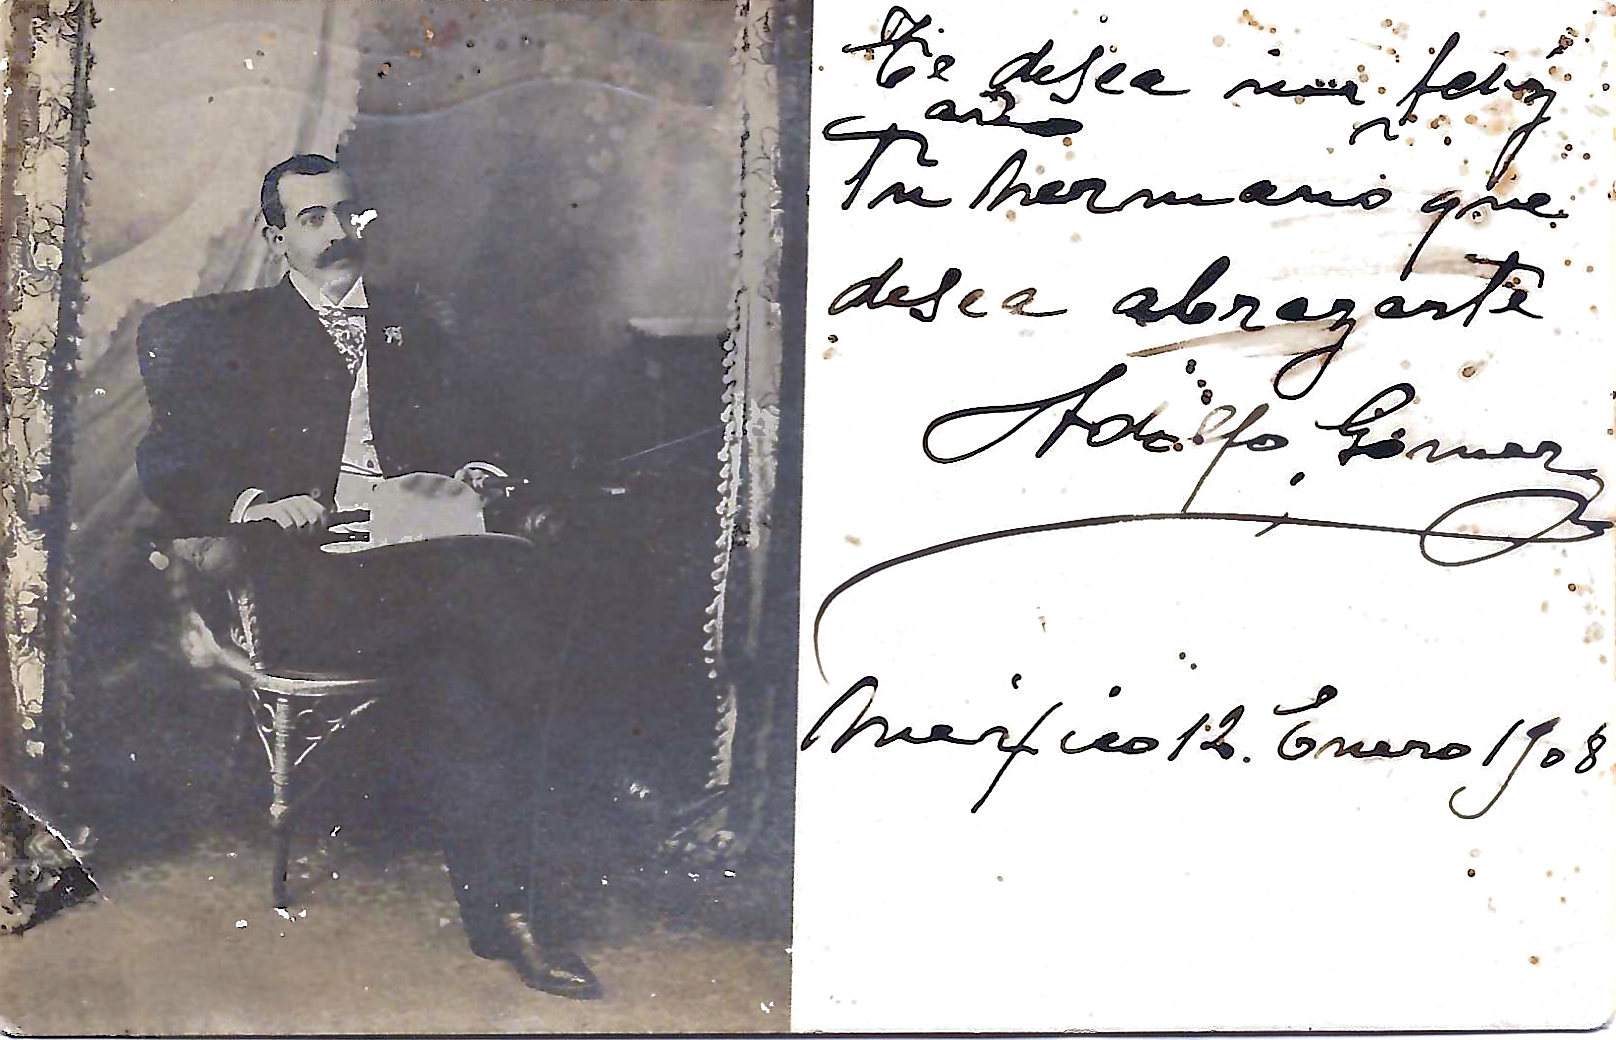 Te desea un feliz
año
Tu hermano que
desea abrazarte
Adolfo Gómez
Mexico 12. Enero 1908